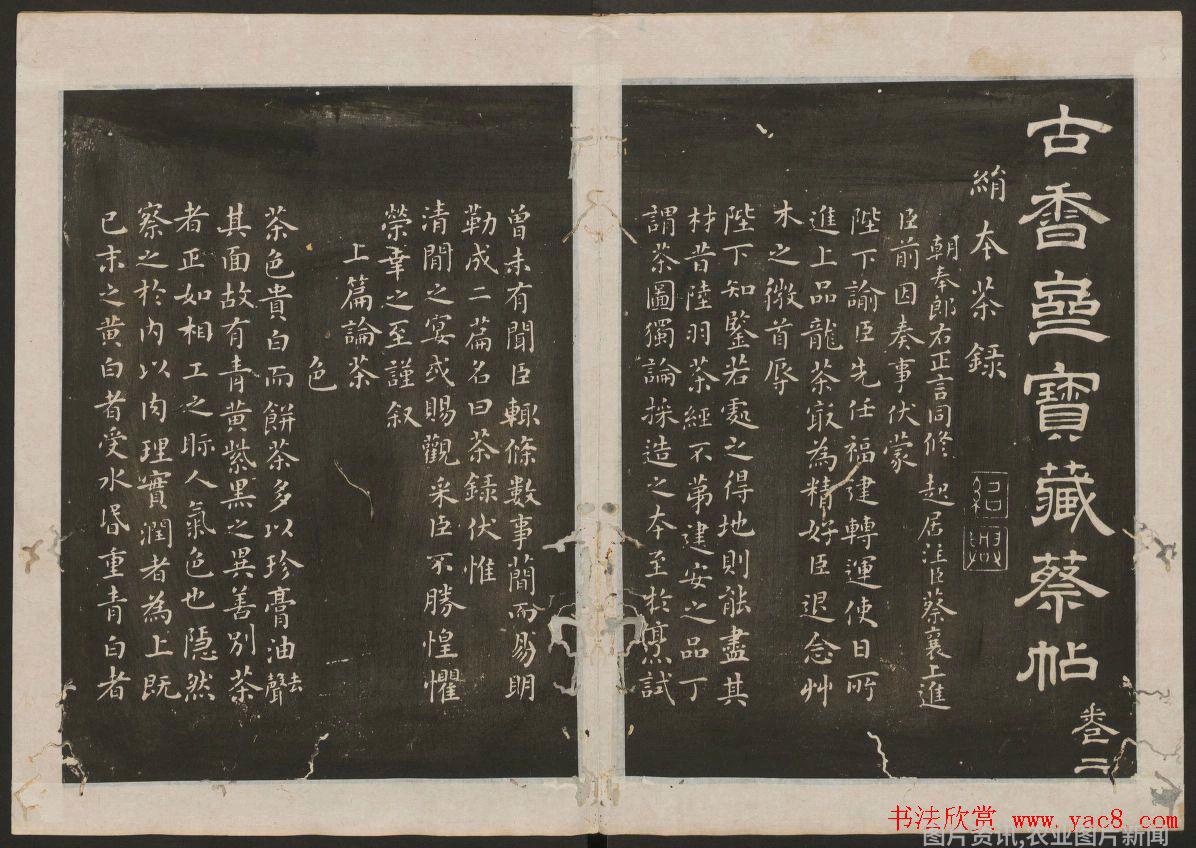 古香齋寶藏蔡帖
卷二
絹本茶錄
紹興
朝奉郎右正言同修起居注臣蔡襄上進
臣前因奏事伏蒙
陛下諭臣先任福建轉運使日所
進上品龍茶㝡為精好臣退念艸
木之微首辱
陛下知鑒若處之得地則能盡其
材昔陸羽茶經不第建安之品丁
謂茶圖獨論採造之本至於烹試
曾未有聞臣輒條數事蕳而易明
勒成二篇名曰茶錄伏惟
清閒之宴或賜觀采臣不勝惶懼
榮幸之至謹叙
上篇論茶
色
茶色貴白而餅茶多以珍膏油去聲
其面故有青黃紫黑之異善別茶
者正如相工之眎人氣色也隱然
察之於內以肉理實潤者為上既
已末之黃白者受水昬重青白者
书法欣赏 www.yac8.com
图片资讯,农业图片新闻